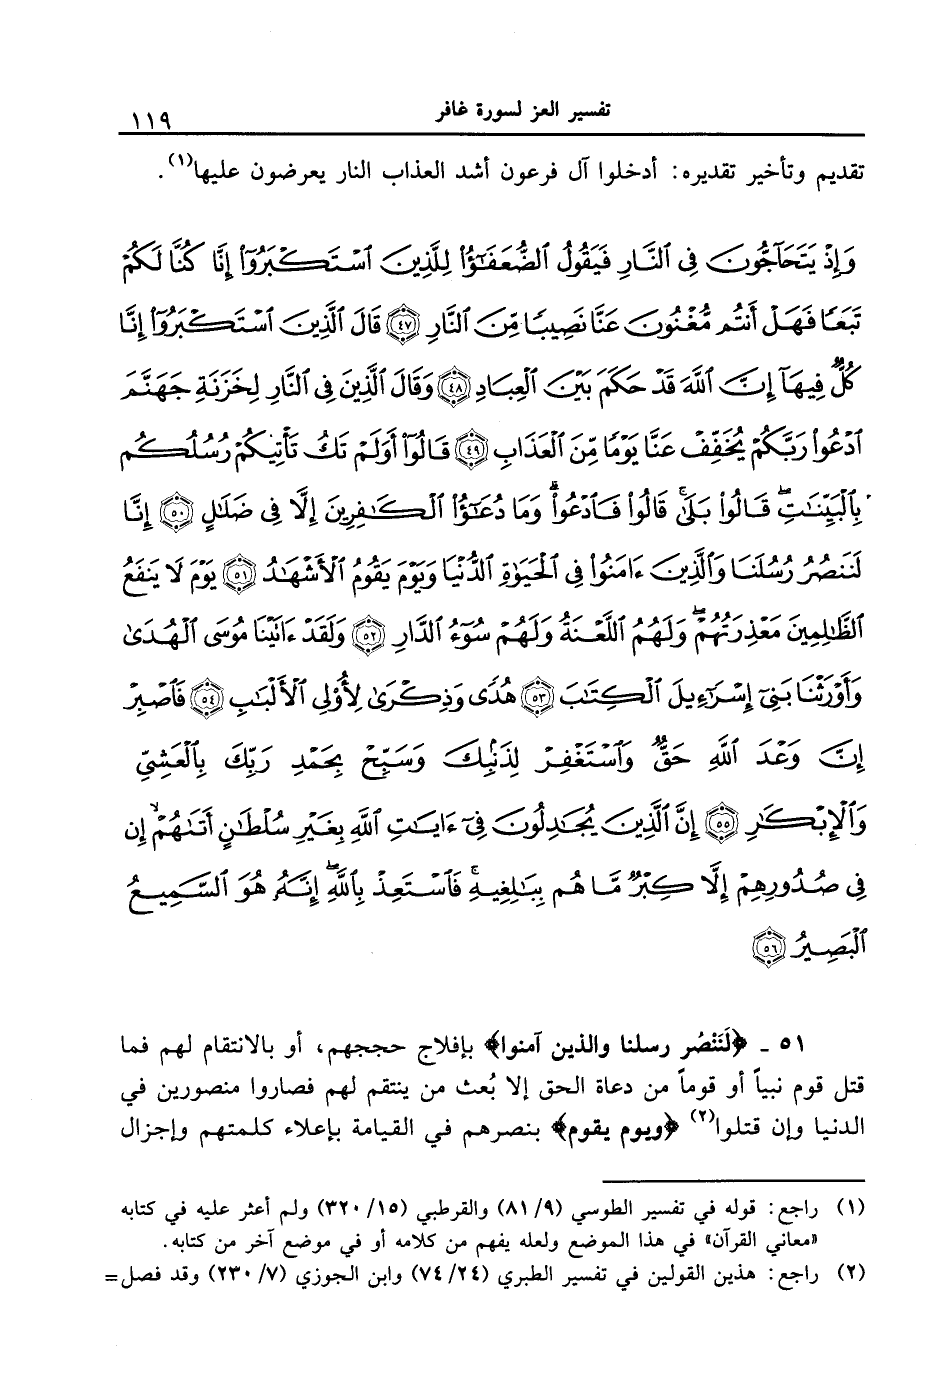 تفسير العز لسورة غافر ١١٩
تقديم وتأخير تقديره: أدخلوا آل فرعون أشد العذاب النار يعرضون عليها(١).
وَإِذْ يَتَحَآجُّونَ فِى ٱلنَّارِ فَيَقُولُ ٱلضُّعَفَٰٓؤُا۟ لِلَّذِينَ ٱسْتَكْبَرُوٓا۟ إِنَّا كُنَّا لَكُمْ
تَبَعًا فَهَلْ أَنتُم مُّغْنُونَ عَنَّا نَصِيبًا مِّنَ ٱلنَّارِ ﴿٤٧﴾ قَالَ ٱلَّذِينَ ٱسْتَكْبَرُوٓا۟ إِنَّا
كُلٌّ فِيهَآ إِنَّ ٱللَّهَ قَدْ حَكَمَ بَيْنَ ٱلْعِبَادِ ﴿٤٨﴾ وَقَالَ ٱلَّذِينَ فِى ٱلنَّارِ لِخَزَنَةِ جَهَنَّمَ
ٱدْعُوا۟ رَبَّكُمْ يُخَفِّفْ عَنَّا يَوْمًا مِّنَ ٱلْعَذَابِ ﴿٤٩﴾ قَالُوٓا۟ أَوَلَمْ تَكُ تَأْتِيكُمْ رُسُلُكُم
بِٱلْبَيِّنَٰتِ ۖ قَالُوا۟ بَلَىٰ ۚ قَالُوا۟ فَٱدْعُوا۟ ۗ وَمَا دُعَٰٓؤُا۟ ٱلْكَٰفِرِينَ إِلَّا فِى ضَلَٰلٍ ﴿٥٠﴾ إِنَّا
لَنَنصُرُ رُسُلَنَا وَٱلَّذِينَ ءَامَنُوا۟ فِى ٱلْحَيَوٰةِ ٱلدُّنْيَا وَيَوْمَ يَقُومُ ٱلْأَشْهَٰدُ ﴿٥١﴾ يَوْمَ لَا يَنفَعُ
ٱلظَّٰلِمِينَ مَعْذِرَتُهُمْ ۖ وَلَهُمُ ٱللَّعْنَةُ وَلَهُمْ سُوٓءُ ٱلدَّارِ ﴿٥٢﴾ وَلَقَدْ ءَاتَيْنَا مُوسَى ٱلْهُدَىٰ
وَأَوْرَثْنَا بَنِىٓ إِسْرَٰٓءِيلَ ٱلْكِتَٰبَ ﴿٥٣﴾ هُدًى وَذِكْرَىٰ لِأُو۟لِى ٱلْأَلْبَٰبِ ﴿٥٤﴾ فَٱصْبِرْ
إِنَّ وَعْدَ ٱللَّهِ حَقٌّ وَٱسْتَغْفِرْ لِذَنۢبِكَ وَسَبِّحْ بِحَمْدِ رَبِّكَ بِٱلْعَشِىِّ
وَٱلْإِبْكَٰرِ ﴿٥٥﴾ إِنَّ ٱلَّذِينَ يُجَٰدِلُونَ فِىٓ ءَايَٰتِ ٱللَّهِ بِغَيْرِ سُلْطَٰنٍ أَتَىٰهُمْ ۙ إِن
فِى صُدُورِهِمْ إِلَّا كِبْرٌ مَّا هُم بِبَٰلِغِيهِ ۚ فَٱسْتَعِذْ بِٱللَّهِ ۖ إِنَّهُۥ هُوَ ٱلسَّمِيعُ
ٱلْبَصِيرُ ﴿٥٦﴾
٥١ ـ ﴿لَنَنْصُر رسلنا والذين آمنوا﴾ بإفلاج حججهم، أو بالانتقام لهم فما
قتل قوم نبياً أو قوماً من دعاة الحق إلا بُعث من ينتقم لهم فصاروا منصورين في
الدنيا وإن قتلوا(٢) ﴿ويوم يقوم﴾ بنصرهم في القيامة بإعلاء كلمتهم وإجزال
(١) راجع: قوله في تفسير الطوسي (٨١/٩) والقرطبي (٣٢٠/١٥) ولم أعثر عليه في كتابه
«معاني القرآن» في هذا الموضع ولعله يفهم من كلامه أو في موضع آخر من كتابه.
(٢) راجع: هذين القولين في تفسير الطبري (٧٤/٢٤) وابن الجوزي (٢٣٠/٧) وقد فصل=